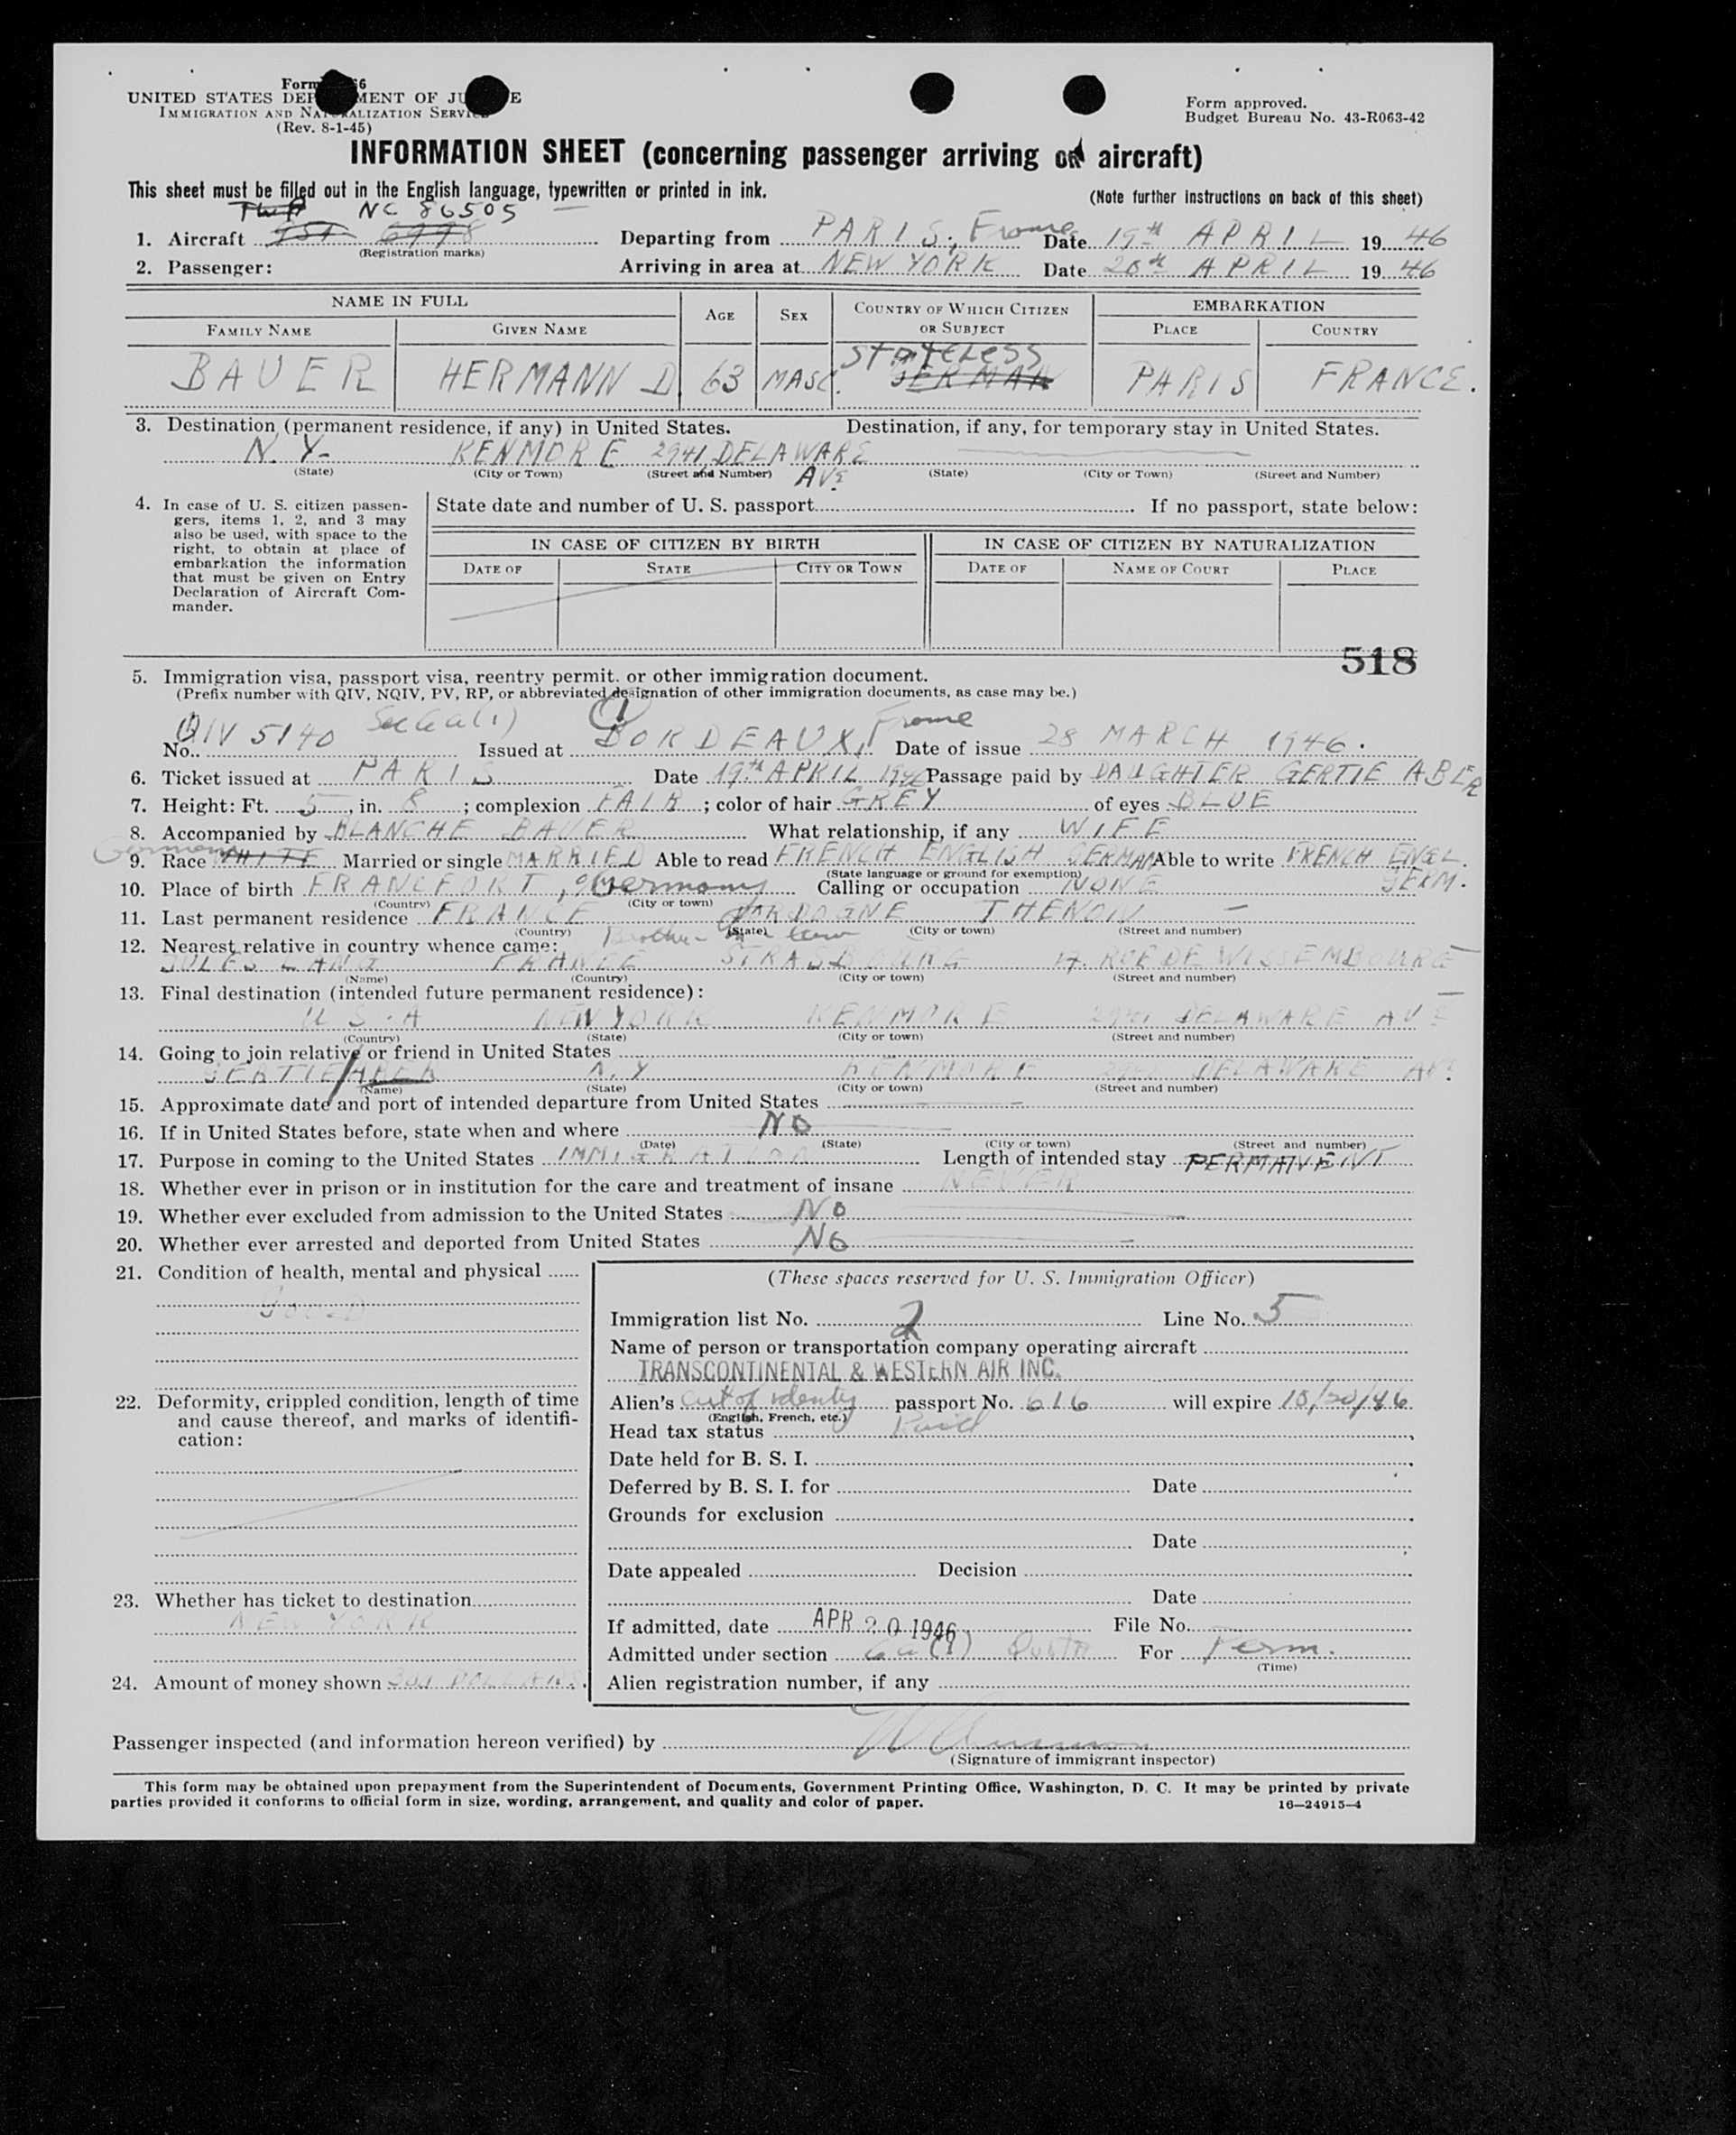 Form 66
UNITED STATES DEPARTMENT OF JUSTICE
IMMIGRATION AND NATURALIZATION SERVICE
(Rev. 8-1-45)
Form approved.
Budget Bureau No. 43-R063-42
INFORMATION SHEET (concerning passenger arriving on aircraft)
This sheet must be filled out in the English language, typewritten or printed in ink.
(Note further instructions on back of this sheet)
TWA NC 86505
1. Aircraft Departing from PARIS, France Date 19th APRIL 1946
(Registration marks)
2. Passenger: Arriving in area at NEW YORK Date 20th APRIL 1946
NAME IN FULL AGE SEX COUNTRY OF WHICH CITIZEN OR SUBJECT EMBARKATION
FAMILY NAME GIVEN NAME PLACE COUNTRY
STATELESS
BAUER HERMANN D 63 MASC. GERMAN PARIS FRANCE.
3. Destination (permanent residence, if any) in United States. Destination, if any, for temporary stay in United States.
N.Y. KENMORE 2941 DELAWARE AVE
(State) (City or Town) (Street and Number) (State) (City or Town) (Street and Number)
4. In case of U. S. citizen passengers, items 1, 2, and 3 may also be used, with space to the right, to obtain at place of embarkation the information that must be given on Entry Declaration of Aircraft Commander.
State date and number of U. S. passport If no passport, state below:
IN CASE OF CITIZEN BY BIRTH IN CASE OF CITIZEN BY NATURALIZATION
DATE OF STATE CITY OR TOWN DATE OF NAME OF COURT PLACE
518
5. Immigration visa, passport visa, reentry permit, or other immigration document.
(Prefix number with QIV, NQIV, PV, RP, or abbreviated designation of other immigration documents, as case may be.)
Sec 6a(1)
No. QIV 5140 Issued at BORDEAUX, France Date of issue 28 MARCH 1946.
6. Ticket issued at PARIS Date 19th APRIL 1946 Passage paid by DAUGHTER GERTIE ABER
7. Height: Ft. 5, in. 8; complexion FAIR; color of hair GREY of eyes BLUE
8. Accompanied by BLANCHE BAUER What relationship, if any WIFE
German
9. Race WHITE Married or single MARRIED Able to read FRENCH ENGLISH GERMAN Able to write FRENCH ENGL. GERM.
(State language or ground for exemption)
10. Place of birth FRANCFORT, Germany Calling or occupation NONE
(Country) (City or town)
11. Last permanent residence FRANCE DORDOGNE THENON
(Country) (State) (City or town) (Street and number)
12. Nearest relative in country whence came: Brother in law
JULES LANG FRANCE STRASBOURG RUE DE WISSEMBOURG
(Name) (Country) (City or town) (Street and number)
13. Final destination (intended future permanent residence):
U.S.A NEW YORK KENMORE 2941 DELAWARE AVE
(Country) (State) (City or town) (Street and number)
14. Going to join relative or friend in United States
GERTIE ABER N.Y KENMORE 2941 DELAWARE AVE
(Name) (State) (City or town) (Street and number)
15. Approximate date and port of intended departure from United States
16. If in United States before, state when and where NO
(Date) (State) (City or town) (Street and number)
17. Purpose in coming to the United States IMMIGRATION Length of intended stay PERMANENT
18. Whether ever in prison or in institution for the care and treatment of insane NEVER
19. Whether ever excluded from admission to the United States NO
20. Whether ever arrested and deported from United States NO
21. Condition of health, mental and physical
GOOD
(These spaces reserved for U. S. Immigration Officer)
Immigration list No. 2 Line No. 5
Name of person or transportation company operating aircraft
TRANSCONTINENTAL & WESTERN AIR INC.
22. Deformity, crippled condition, length of time and cause thereof, and marks of identification:
Alien's Cert of identity passport No. 616 will expire 10/20/46
(English, French, etc.)
Head tax status Paid
Date held for B. S. I.
Deferred by B. S. I. for Date
Grounds for exclusion
Date
Date appealed Decision
23. Whether has ticket to destination
NEW YORK
Date
If admitted, date APR 20 1946 File No.
Admitted under section 6a(1) Quota For Perm.
(Time)
24. Amount of money shown 300 DOLLARS.
Alien registration number, if any
Passenger inspected (and information hereon verified) by
(Signature of immigrant inspector)
This form may be obtained upon prepayment from the Superintendent of Documents, Government Printing Office, Washington, D. C. It may be printed by private
parties provided it conforms to official form in size, wording, arrangement, and quality and color of paper.
16—24915-4